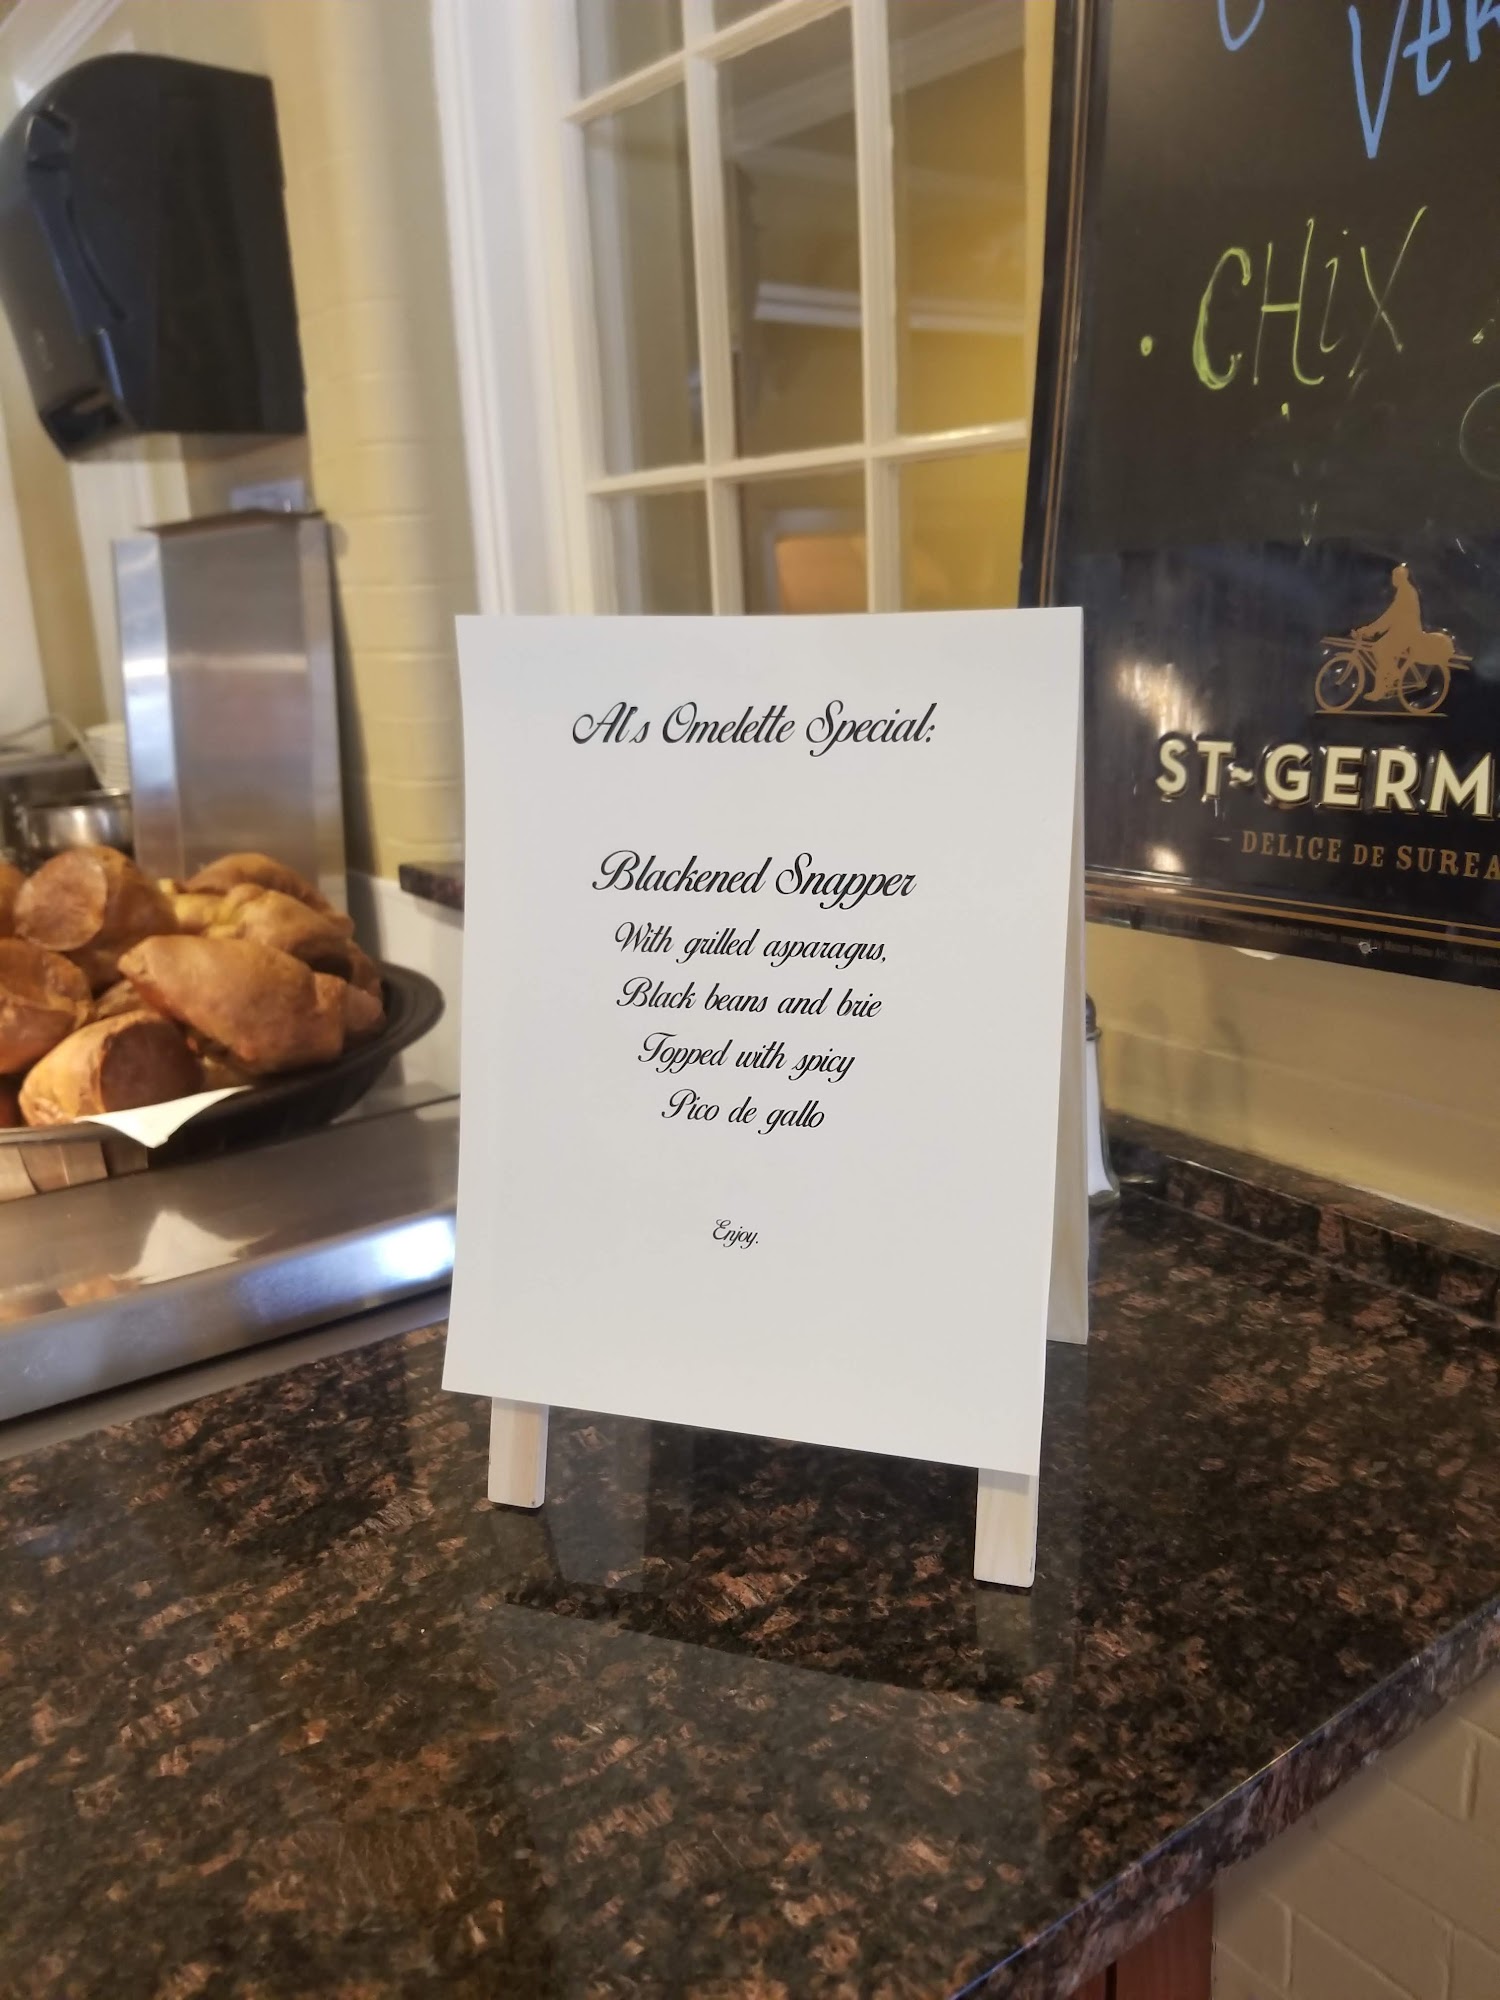 Al's Omelette Special:
Blackened Snapper
With grilled asparagus,
Black beans and brie
Topped with spicy
Pico de gallo
Enjoy.
CHiX
ST~GERM
DELICE DE SUREA